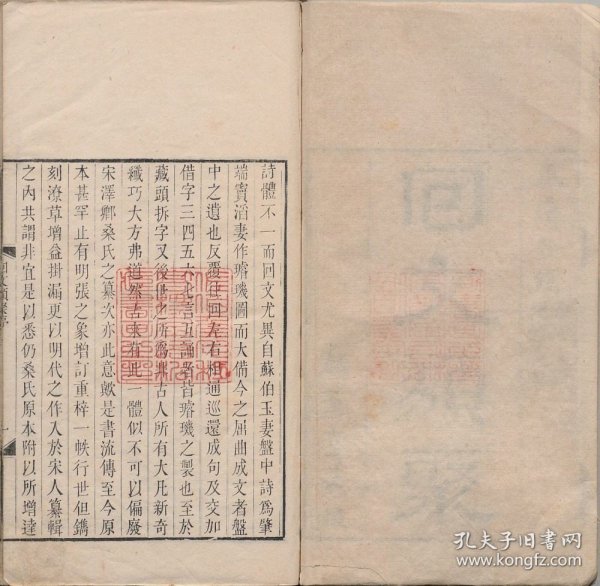 詩體不一而回文尤異自蘇伯玉妻盤中詩為肇
端竇滔妻作璿璣圖而大備今之屈曲成文者盤
中之遺也反覆往回左右相通巡還成句及交加
借字三四五六七言互誦者皆璿璣之製也至於
藏頭拆字又後世之所為與古人所有大凡新奇
纖巧大方弗道然古來有此一體似不可以偏廢
宋澤卿桑氏之纂次亦此意歟是書流傳至今原
本甚罕止有明張之象增訂重梓一帙行世但鐫
刻潦草增益掛漏更以明代之作入於宋人纂輯
之內共謂非宜是以悉仍桑氏原本附以所增達
孔夫子旧书网
www.kongfz.com